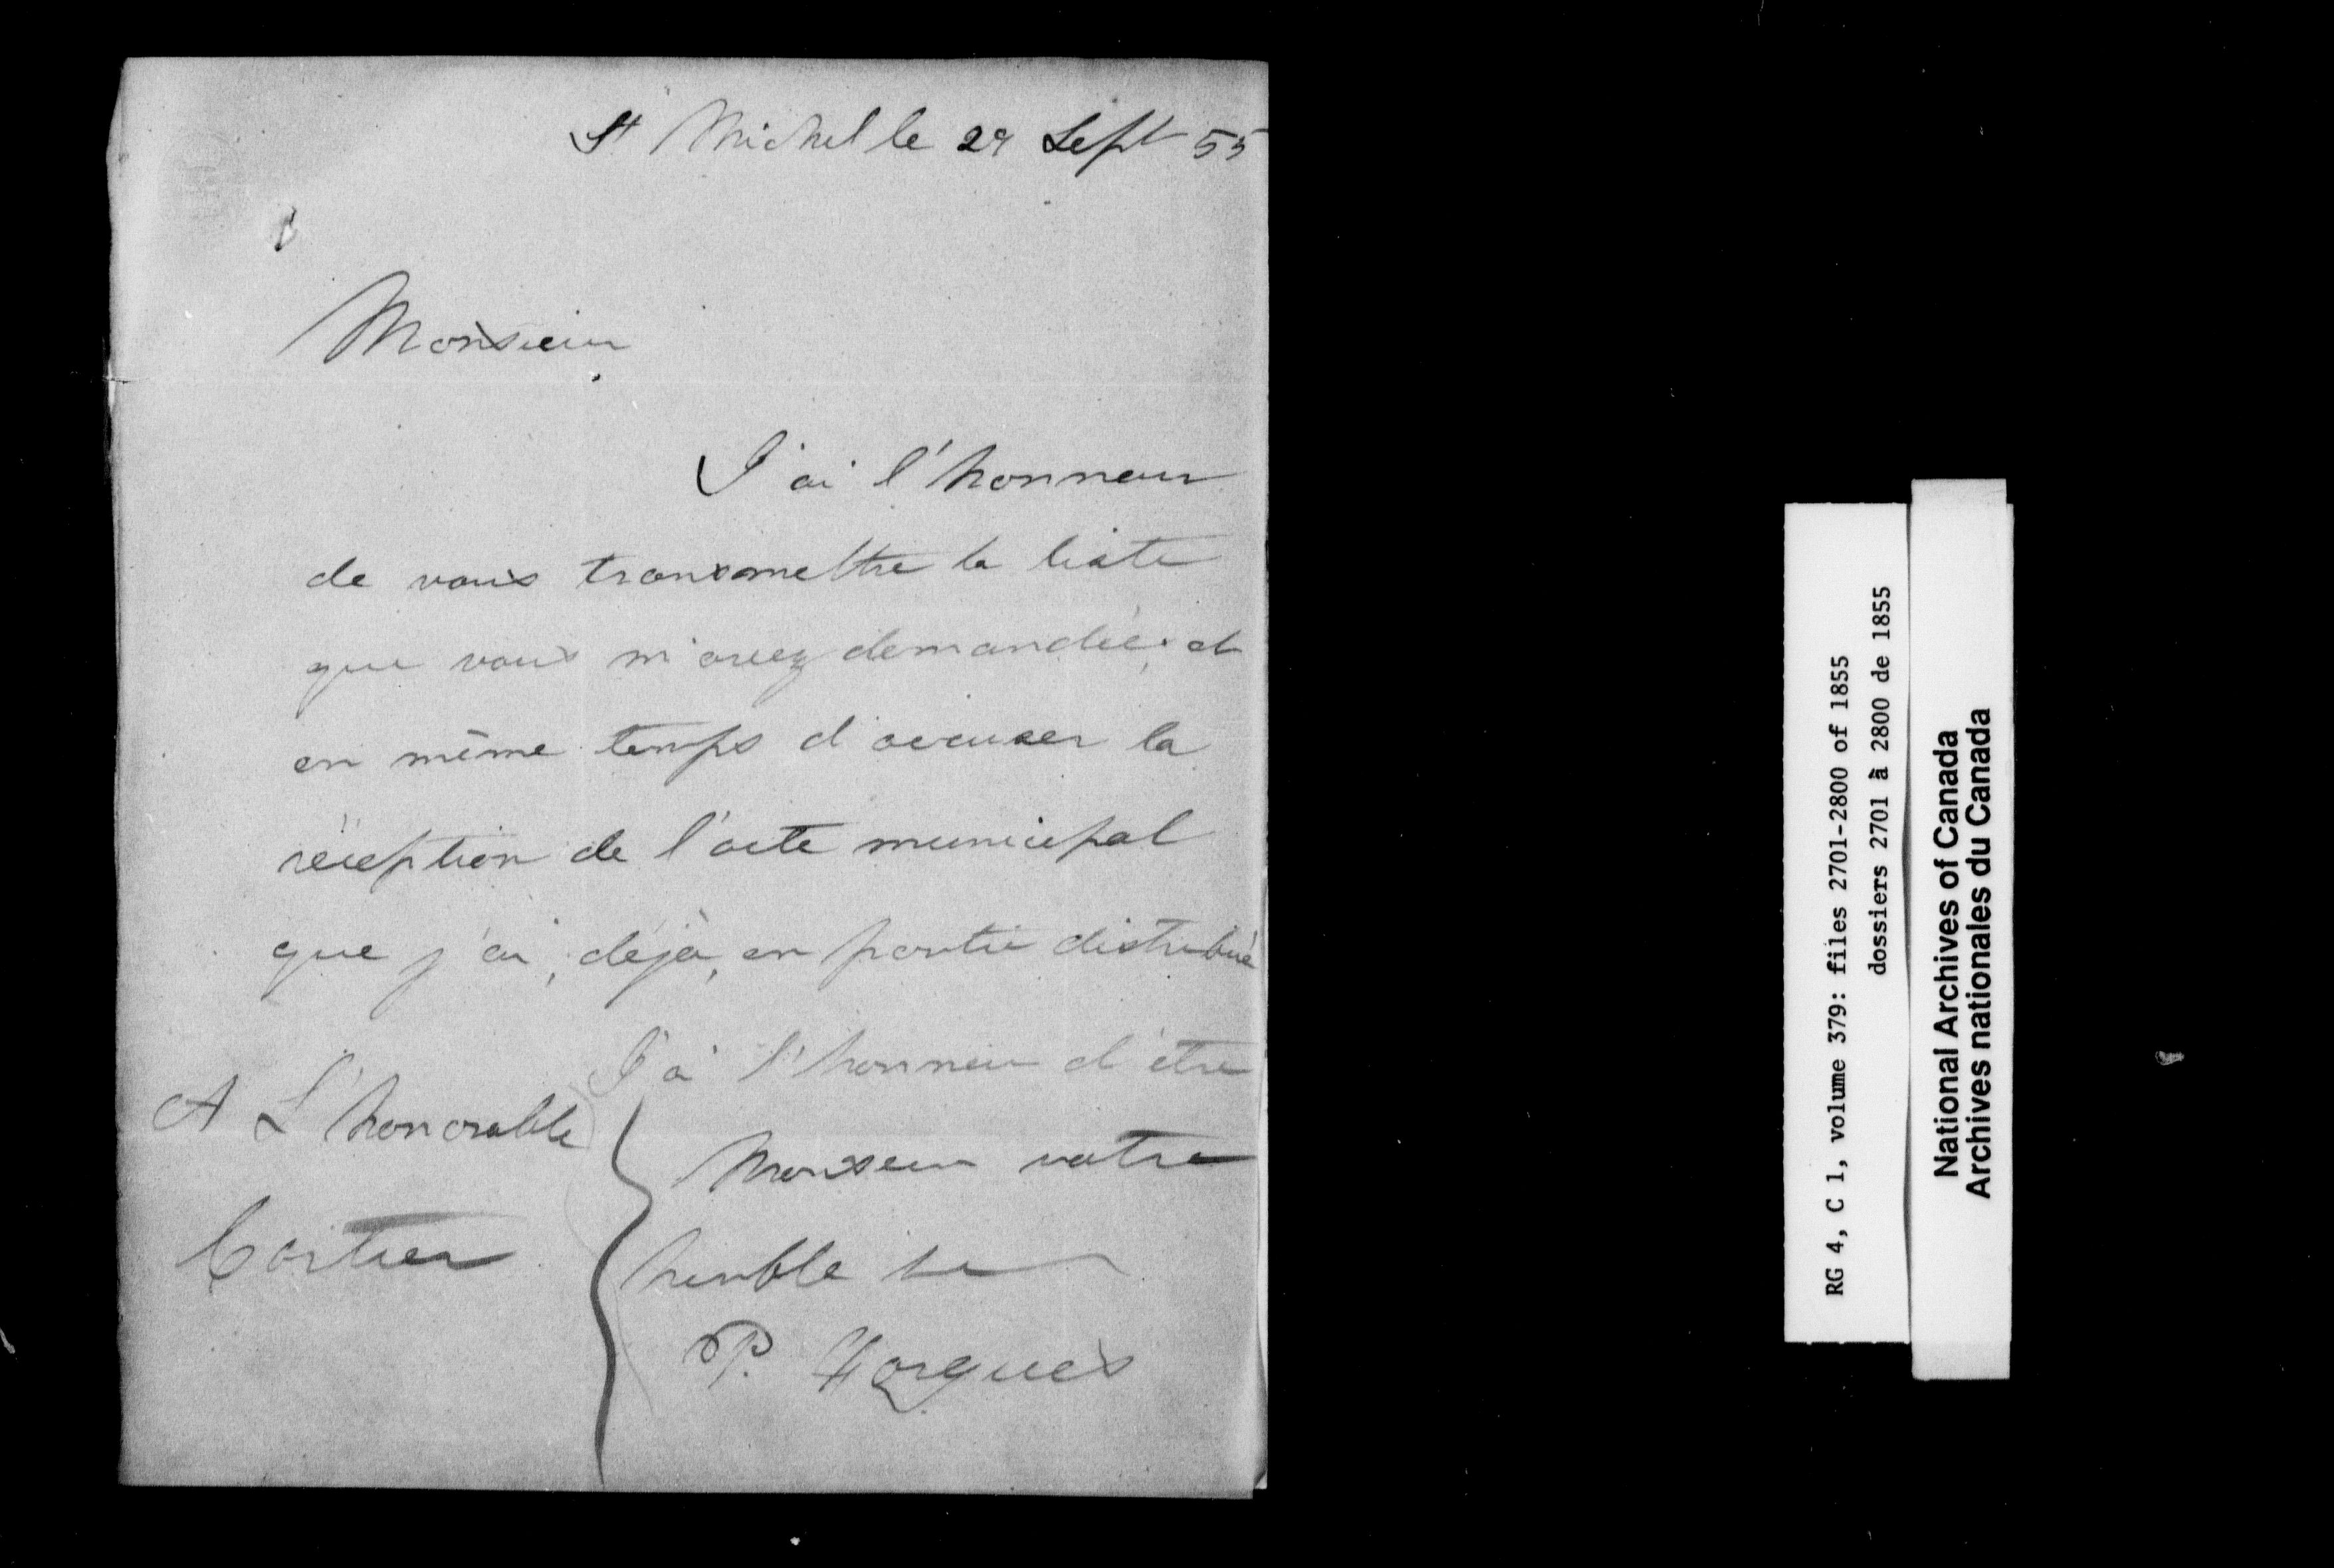 St Michel le 29 Sept 55
Monsieur
J'ai l'honneur
de vous transmettre la liste
que vous m'avez demandée; et
en même temps d'accuser la
réception de l'acte municipal
que j'ai, déjà, en partie distribué
J'ai l'honneur d'être
Monsieur votre
humble
P. Forgues
A L'honorable
Cartier
RG 4, C 1, volume 379: files 2701-2800 of 1855
dossiers 2701 à 2800 de 1855
National Archives of Canada
Archives nationales du Canada